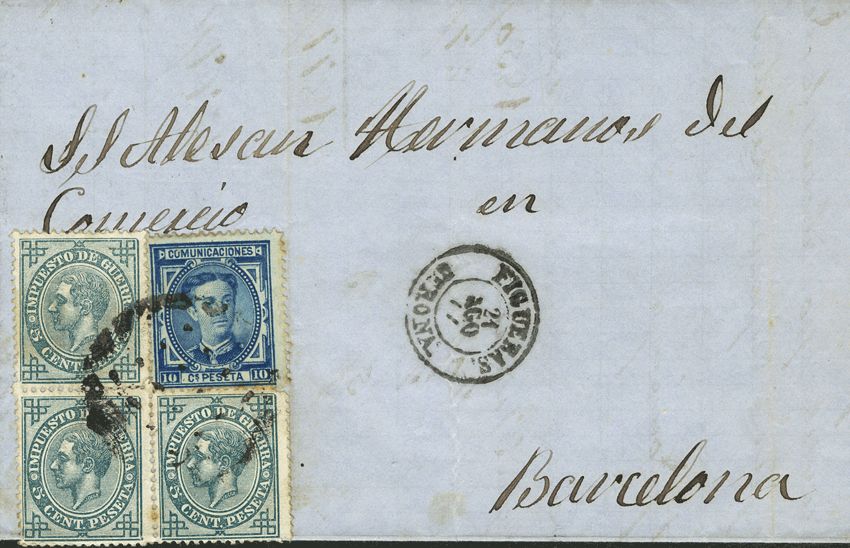 Hermanos del
Comercio en
Barcelona
FIGUERAS.
GERONA.
21
AGO
77
COMUNICACIONES
10 Cs PESETA 10
IMPUESTO DE GUERRA
5 CENT. PESETA
IMPUESTO DE GUERRA
5 CENT. PESETA
IMPUESTO DE GUERRA
5 CENT. PESETA